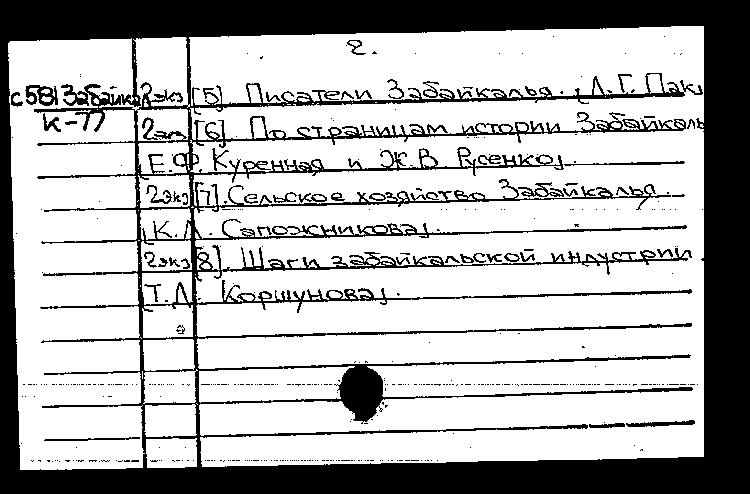 2.
с581Забайка 2экз [5]. Писатели Забайкалья. [Л.Г. Пак
К-77 2экз [6]. По страницам истории Забайкаль
[Е.Ф. Куренная и Ж.В Русенко].
2экз [7]. Сельское хозяйство Забайкалья.
[К.Л. Сапожникова].
2экз [8]. Шаги забайкальской индустрии.
[Т.Л. Коршунова].